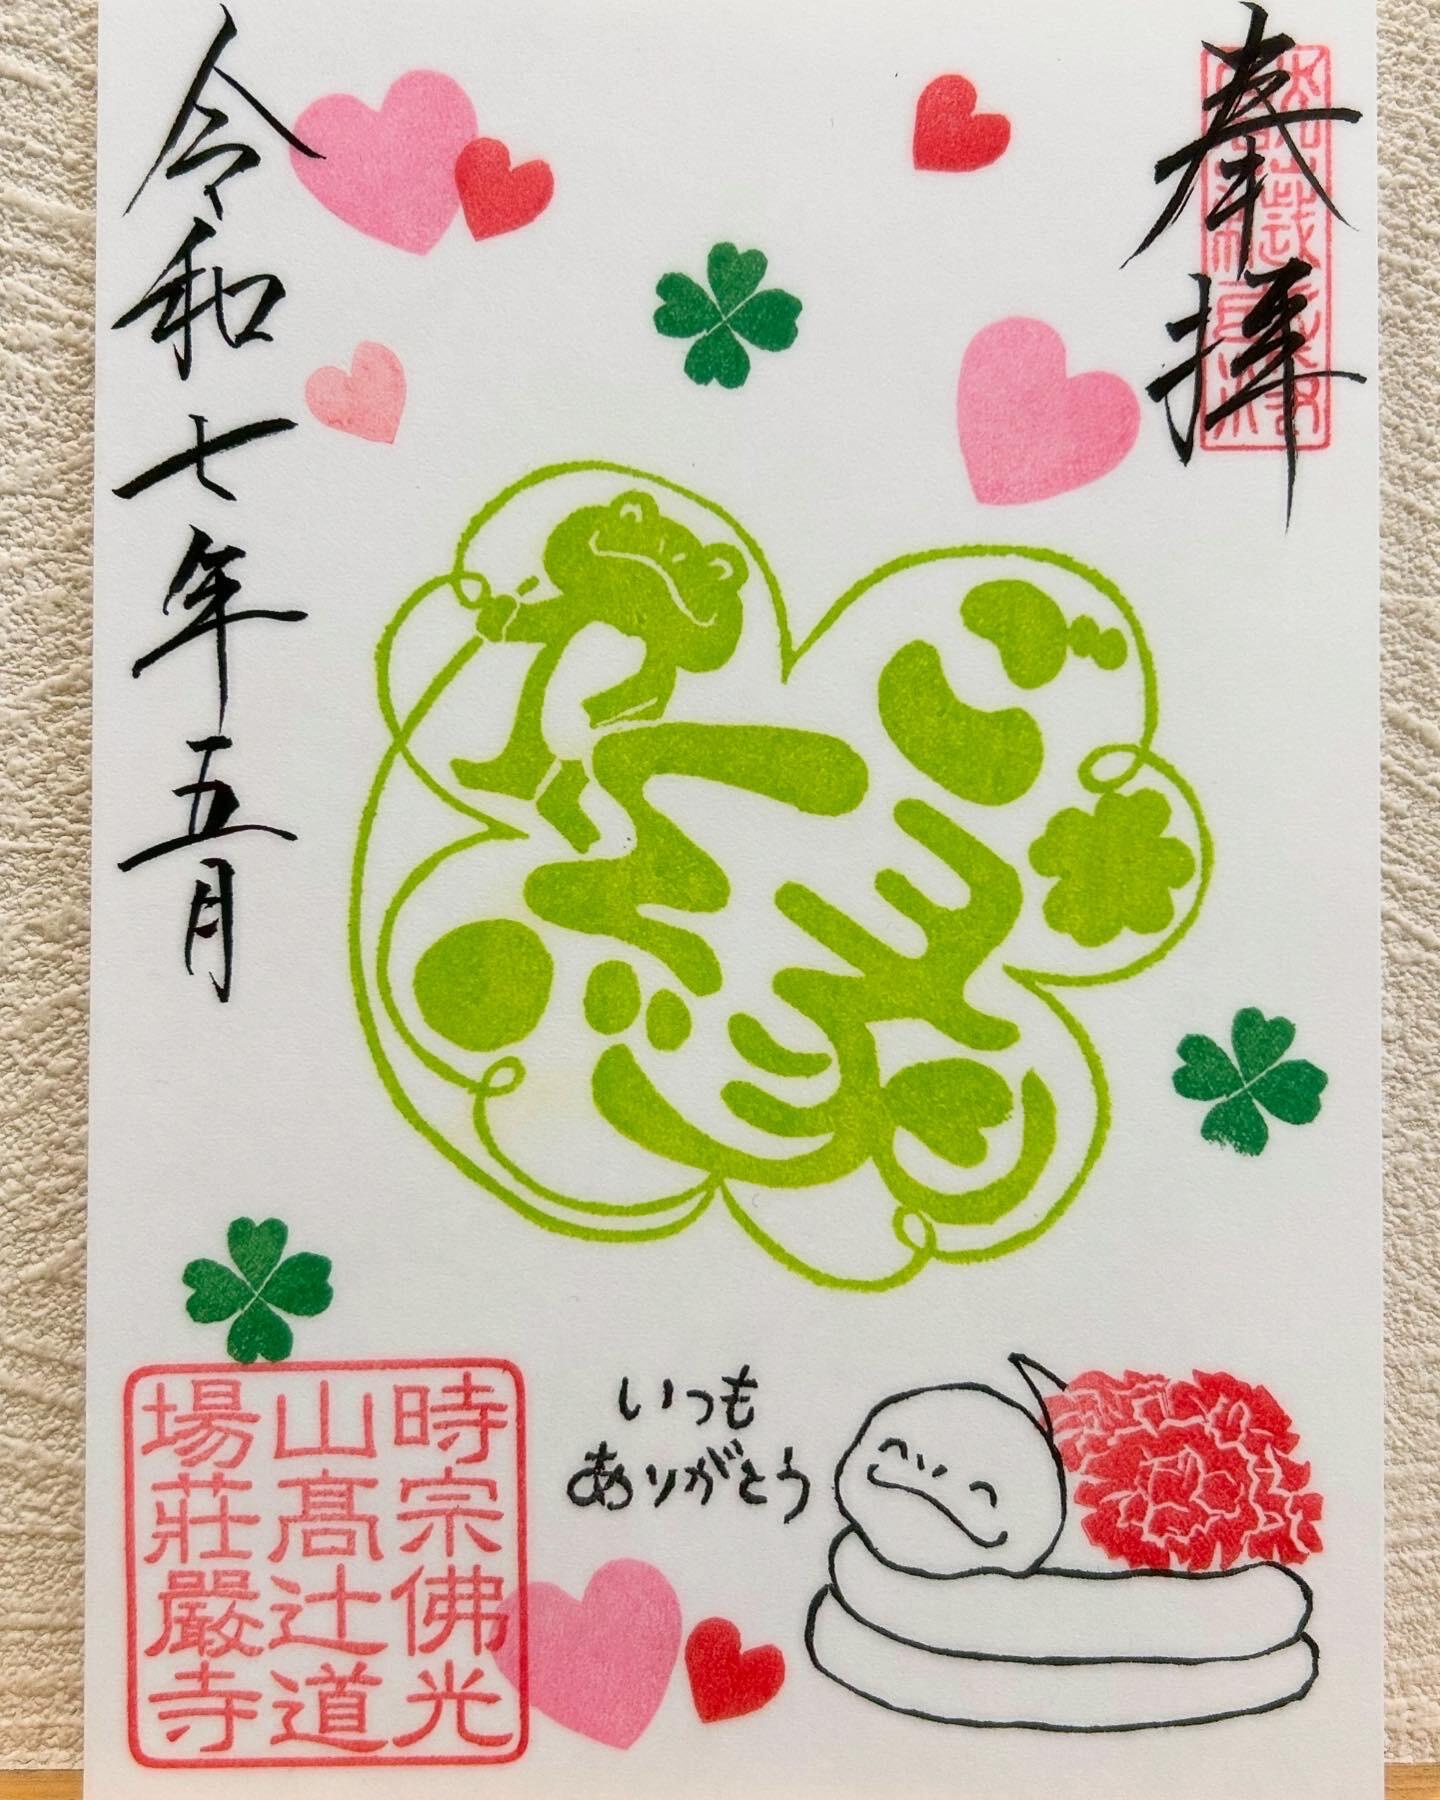 奉拝
令和七年五月
いつも
ありがとう
時宗佛光
山髙辻道
場莊嚴寺